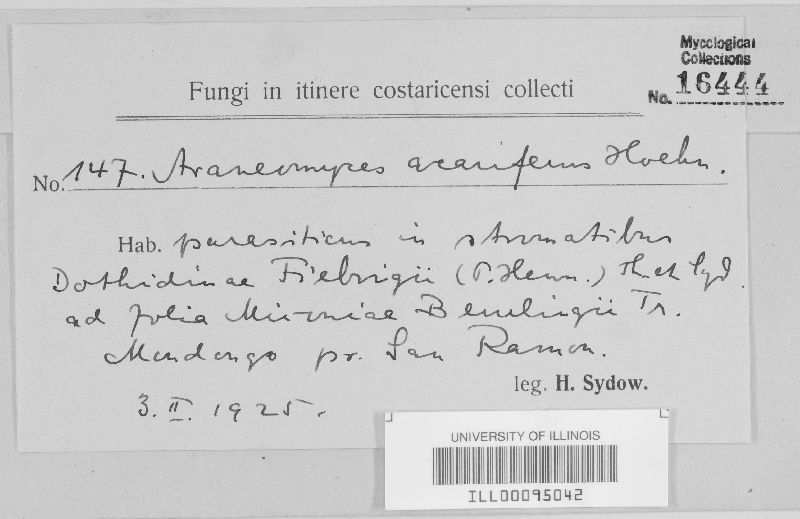 Mycological
Collections
No. 16444
Fungi in itinere costaricensi collecti
No. 147. Araneomyces acariferus Hoehn.
Hab. parasiticus in stromatibus
Dothidinae Fiebrigii (P. Henn.) Th. et Syd.
ad folia Miconiae Beurlingii Tr.
Mondongo pr. San Ramon.
leg. H. Sydow.
3. II. 1925.
UNIVERSITY OF ILLINOIS
ILL00095042